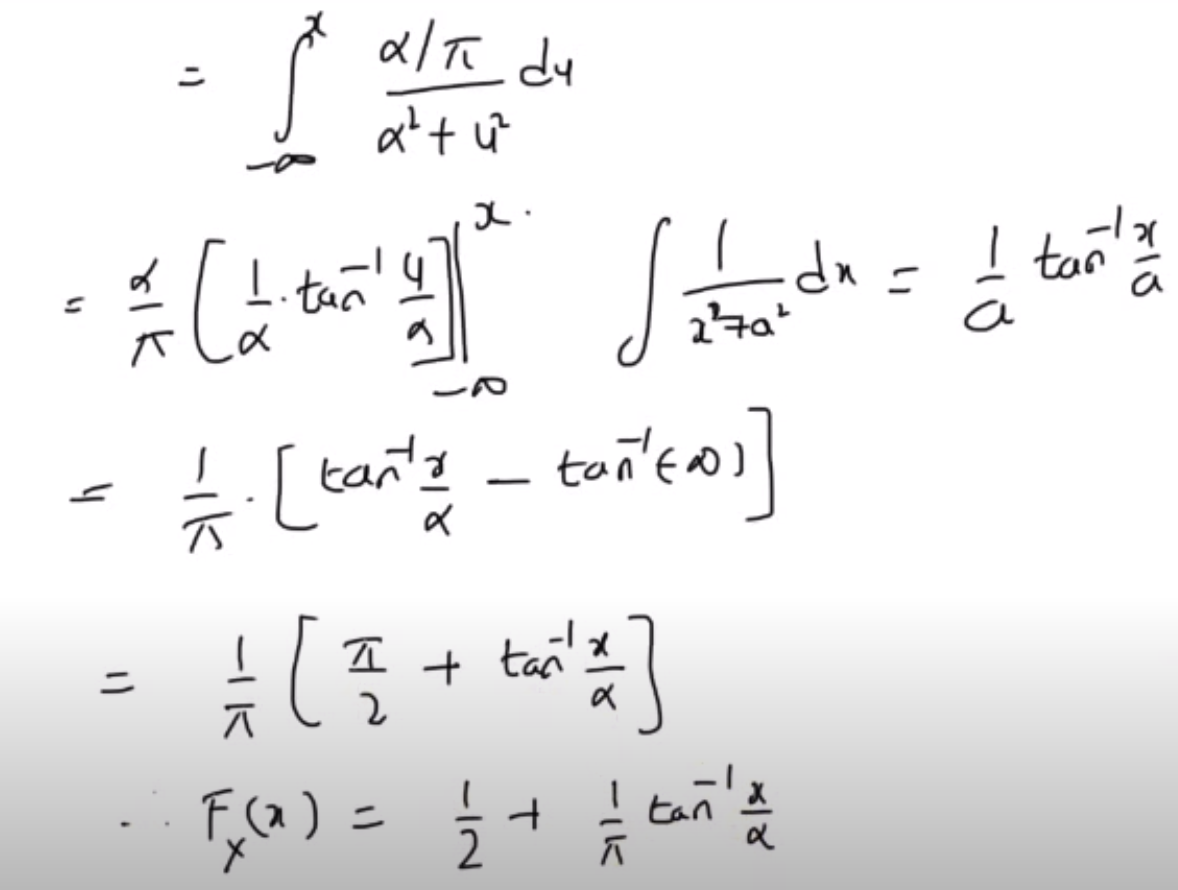 = ∫_{-∞}^{x} (α/π)/(α² + u²) du
= α/π [1/α · tan⁻¹ u/α] |_{-∞}^{x} ∫ 1/(x²+a²) dx = 1/a tan⁻¹ x/a
= 1/π · [tan⁻¹ x/α − tan⁻¹(-∞)]
= 1/π [π/2 + tan⁻¹ x/α]
∴ F_X(x) = 1/2 + 1/π tan⁻¹ x/α